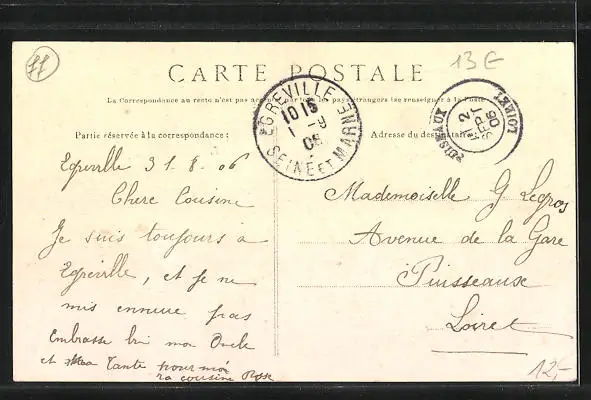 77
13 E
CARTE POSTALE
La Correspondance au recto n'est pas acceptée par tous les pays étrangers (se renseigner à la Poste)
EGREVILLE
10 15
1 - 9
06
SEINE ET MARNE
PUISEAUX
2
SEPT
06
LOIRET
Partie réservée à la correspondance :
Adresse du destinataire
Egreville 31-8-06
Chere Cousine
Je suis toujours a
Egreville, et je ne
mis ennuie pas
Embrasse bien mon Oncle
et ma Tante pour moi
ta cousine Rose
Mademoiselle G Legros
Avenue de la Gare
Puisseaux
Loiret
12,-